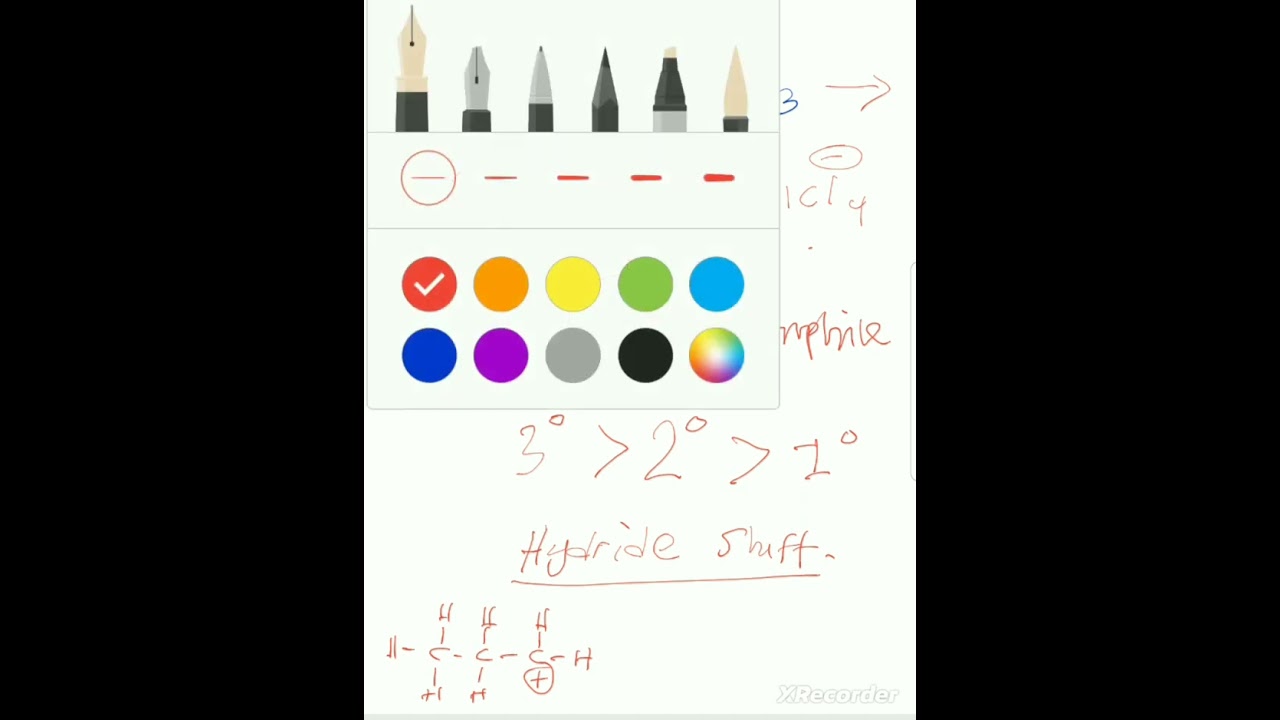 3 →
⊖
lCl4
3° > 2° > 1°
Hydride Shift.
H H H
H-C-C-C-H
H H +
XRecorder